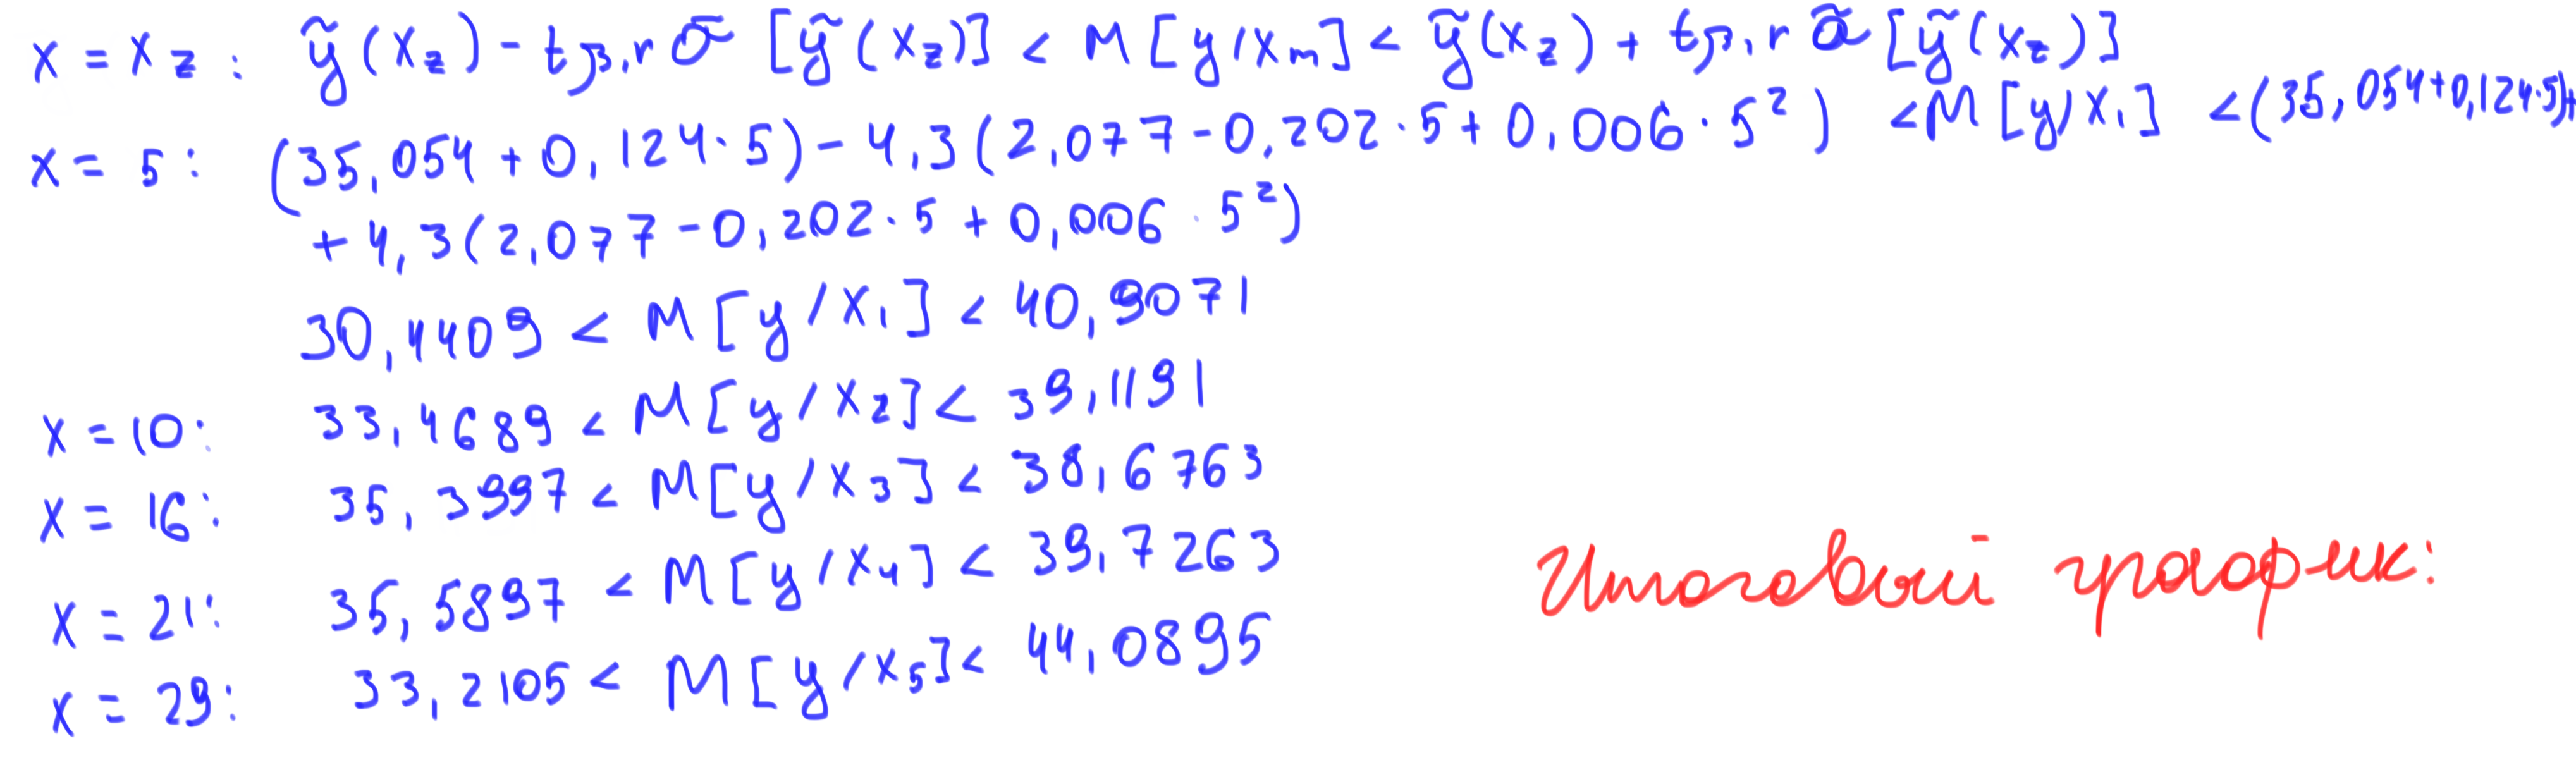 x = x_z : ỹ(x_z) - t_β,r σ̃ [ỹ(x_z)] < M[y/x_m] < ỹ(x_z) + t_β,r σ̃ [ỹ(x_z)]
x = 5 : (35,054 + 0,124·5) - 4,3(2,077 - 0,202·5 + 0,006·5²) < M[y/x₁] < (35,054+0,124·5)+
+ 4,3(2,077 - 0,202·5 + 0,006·5²)
30,4409 < M[y/x₁] < 40,9071
x = 10: 33,4689 < M[y/x₂] < 39,1191
x = 16: 35,3997 < M[y/x₃] < 38,6763
x = 21: 35,5897 < M[y/x₄] < 39,7263
x = 29: 33,2105 < M[y/x₅] < 44,0895
Итоговый график: